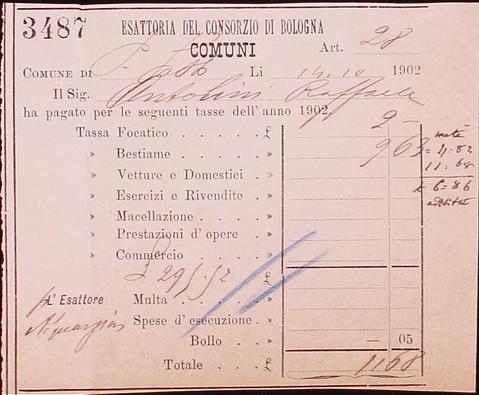 3487 ESATTORIA DEL CONSORZIO DI BOLOGNA
COMUNI Art. 28
COMUNE DI Li 14.10 1902
Il Sig. Antolini Raffaele
ha pagato per le seguenti tasse dell'anno 1902
Tassa Focatico . . . . £ 2 –
» Bestiame . . . . » 9 63 = 4:82
» Vetture e Domestici . » 11:68
» Esercizi e Rivendite . » £ 6=86
» Macellazione . . . . »
» Prestazioni d'opere . »
» Commercio . . . . »
£
p/L' Esattore Multa . . . . . »
Spese d'esecuzione . »
Bollo . . » — 05
Totale . . . £ 1168